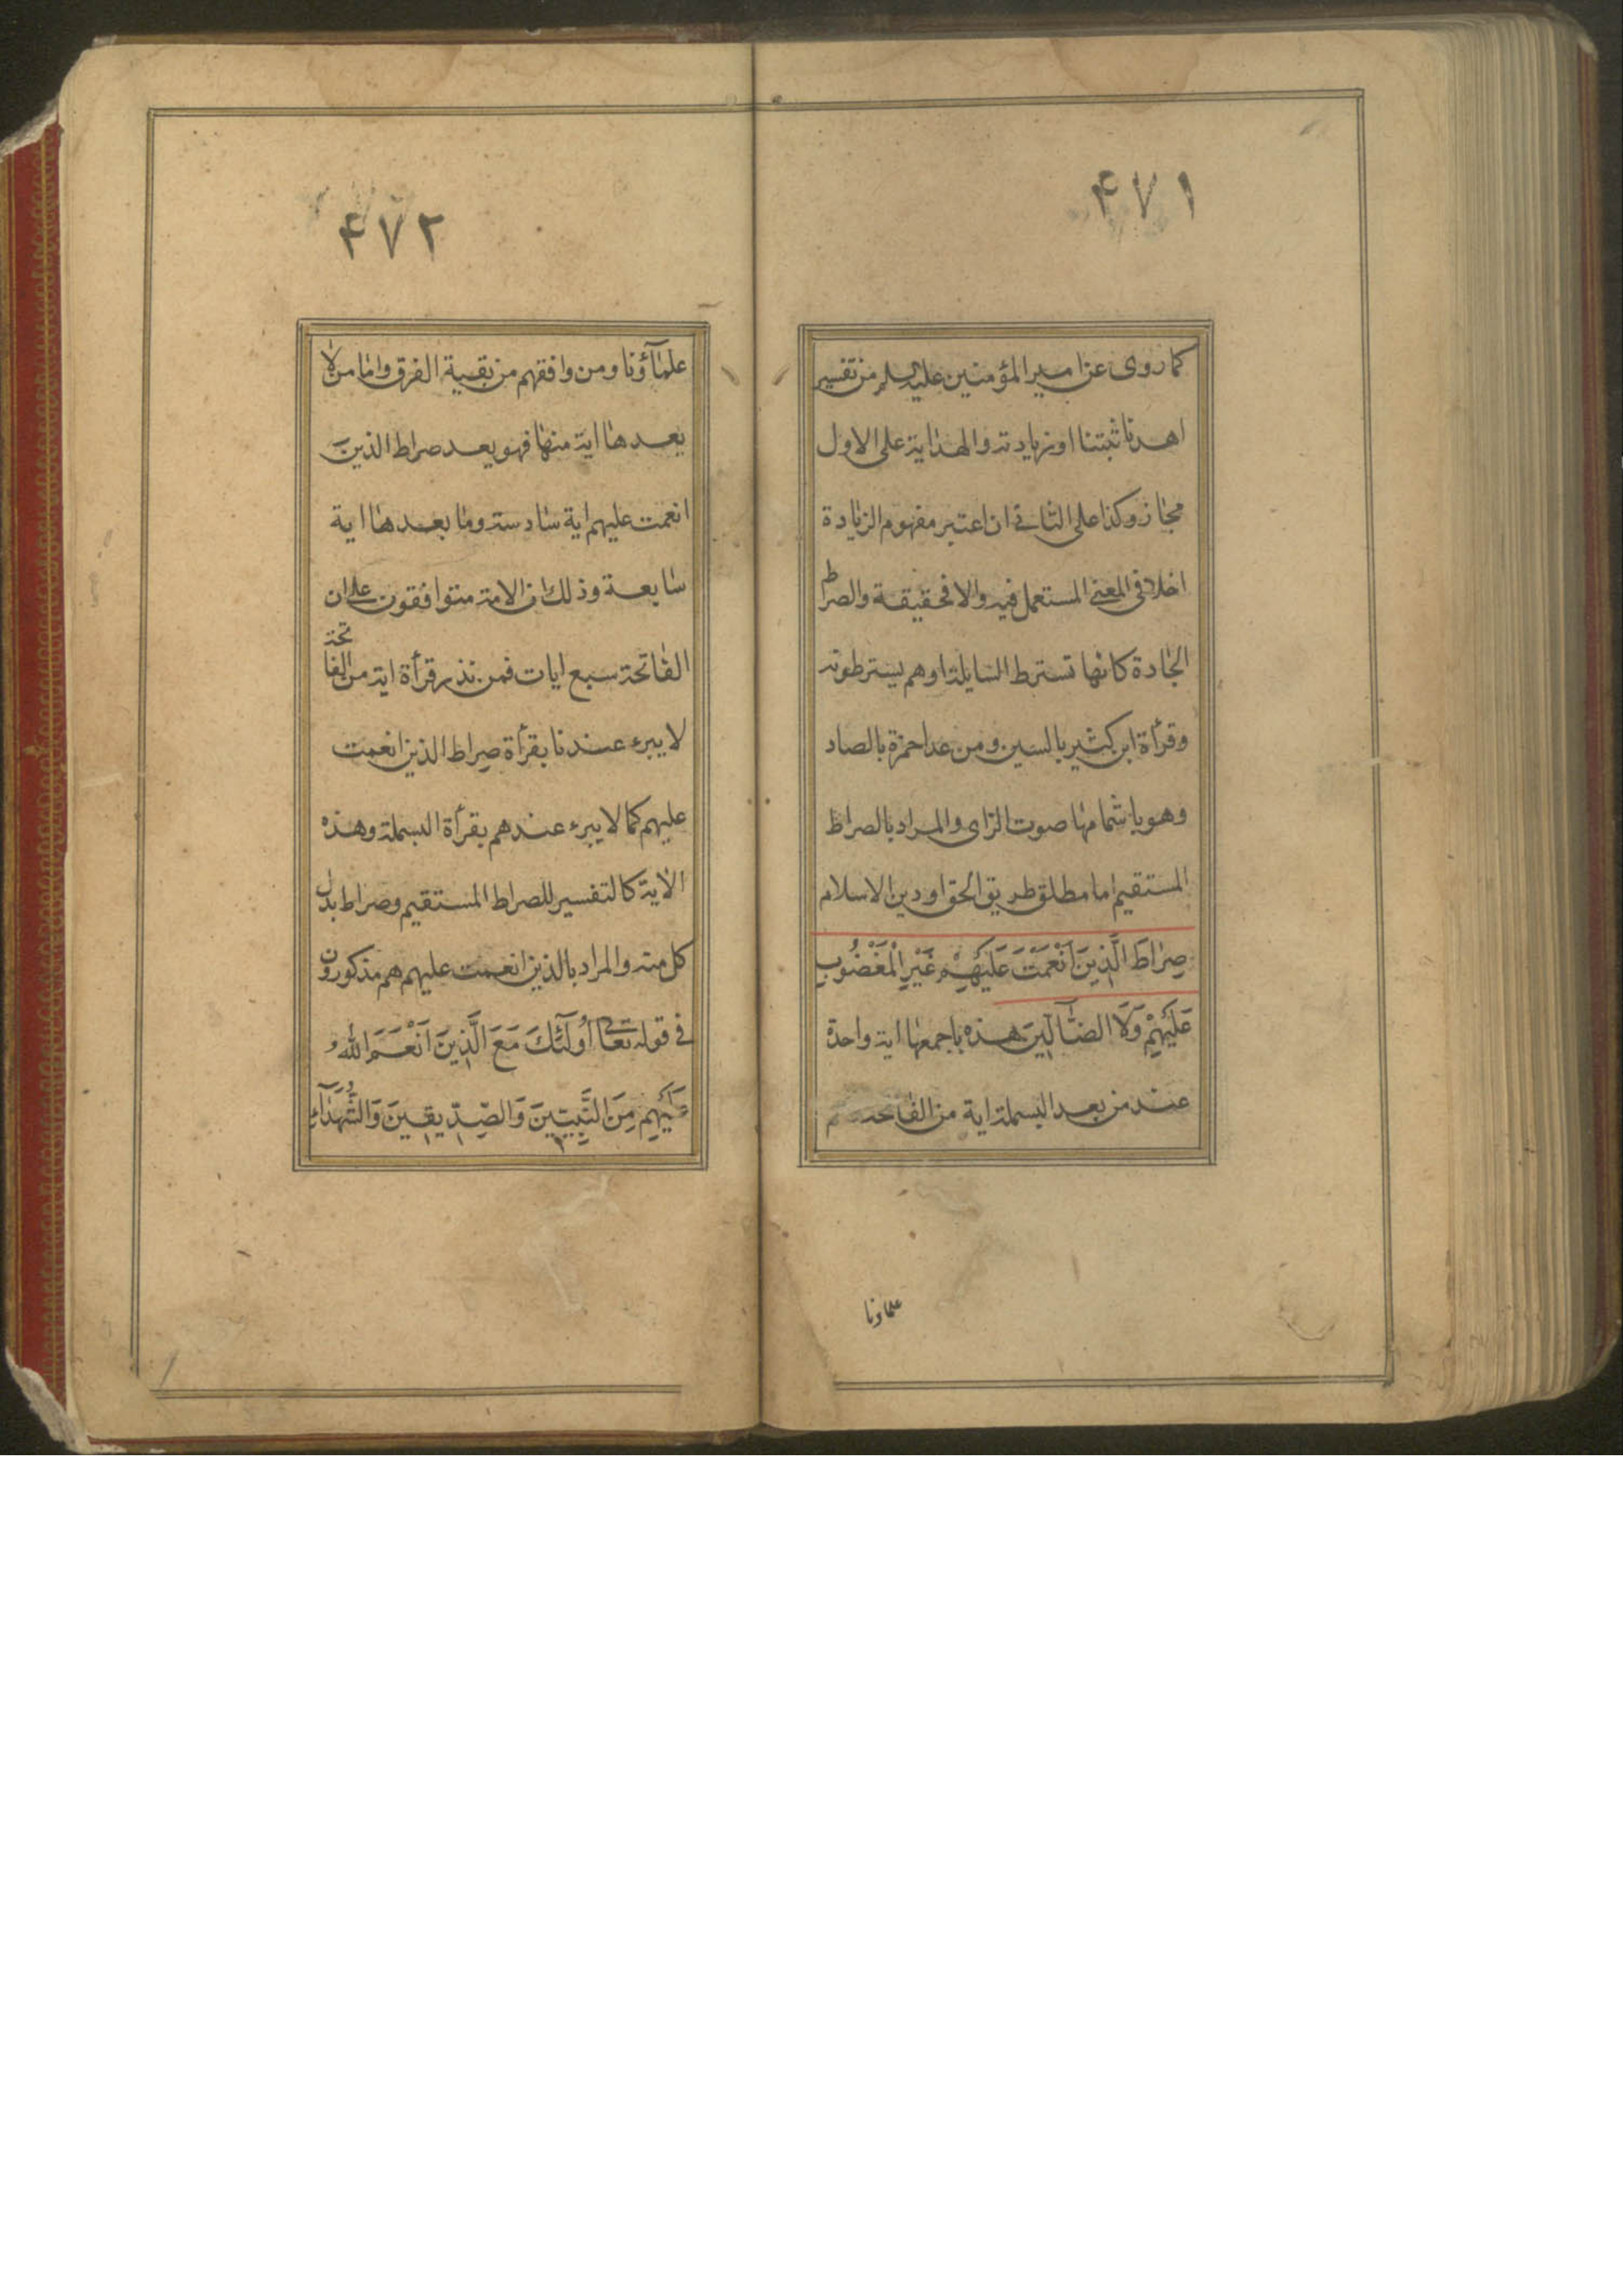 ۴۷۱
كما روى عن امير المؤمنين عليه السلم من تفسير
اهدنا ثبتنا او زيادته والهداية على الاول
مجاز وكذا على الثاني ان اعتبر مفهوم الزيادة
اخلا في المعنى المستعمل فيه والا فحقيقة والصراط
الجادة كانها تسترط السايلة او هم يسترطونه
وقرأة ابن كثير بالسين ومن عدا حمزة بالصاد
وهو باشمامها صوت الزاى والمراد بالصراط
المستقيم اما مطلق طريق الحق او دين الاسلام
صِرٰاطَ الَّذِينَ اَنْعَمْتَ عَلَيْهِمْ غَيْرِ الْمَغْضُوبِ
عَلَيْهِمْ وَلَا الضّٰآلِّينَ هذه باجمعها اية واحدة
عند من بعد البسملة اية من الفاتحة
علماونا
۴۷۲
علمآؤنا ومن وافقهم من بقية الفرق واما من لا
يعدها اية منها فهو يعد صراط الذينَ
انعمت عليهم اية سادسة وما بعدها اية
سابعة وذلك ان الامة متوافقون على ان
الفاتحة سبع ايات فمن نذر قرأة اية من الفاتحة
لا يبرء عندنا بقرأة صِراط الذين انعمت
عليهم كما لا يبرء عندهم بقرأة البسملة وهذه
الاية كالتفسير للصراط المستقيم وصراط بدل
كل منه والمراد بالذين انعمت عليهم هم مذكورون
في قوله تعالى اُولٰٓئِكَ مَعَ الَّذِينَ اَنْعَمَ اللّٰهُ
عَلَيْهِم مِنَ النَّبِيِّينَ وَالصِّدِّيقِينَ وَالشُّهَدٰآءِ